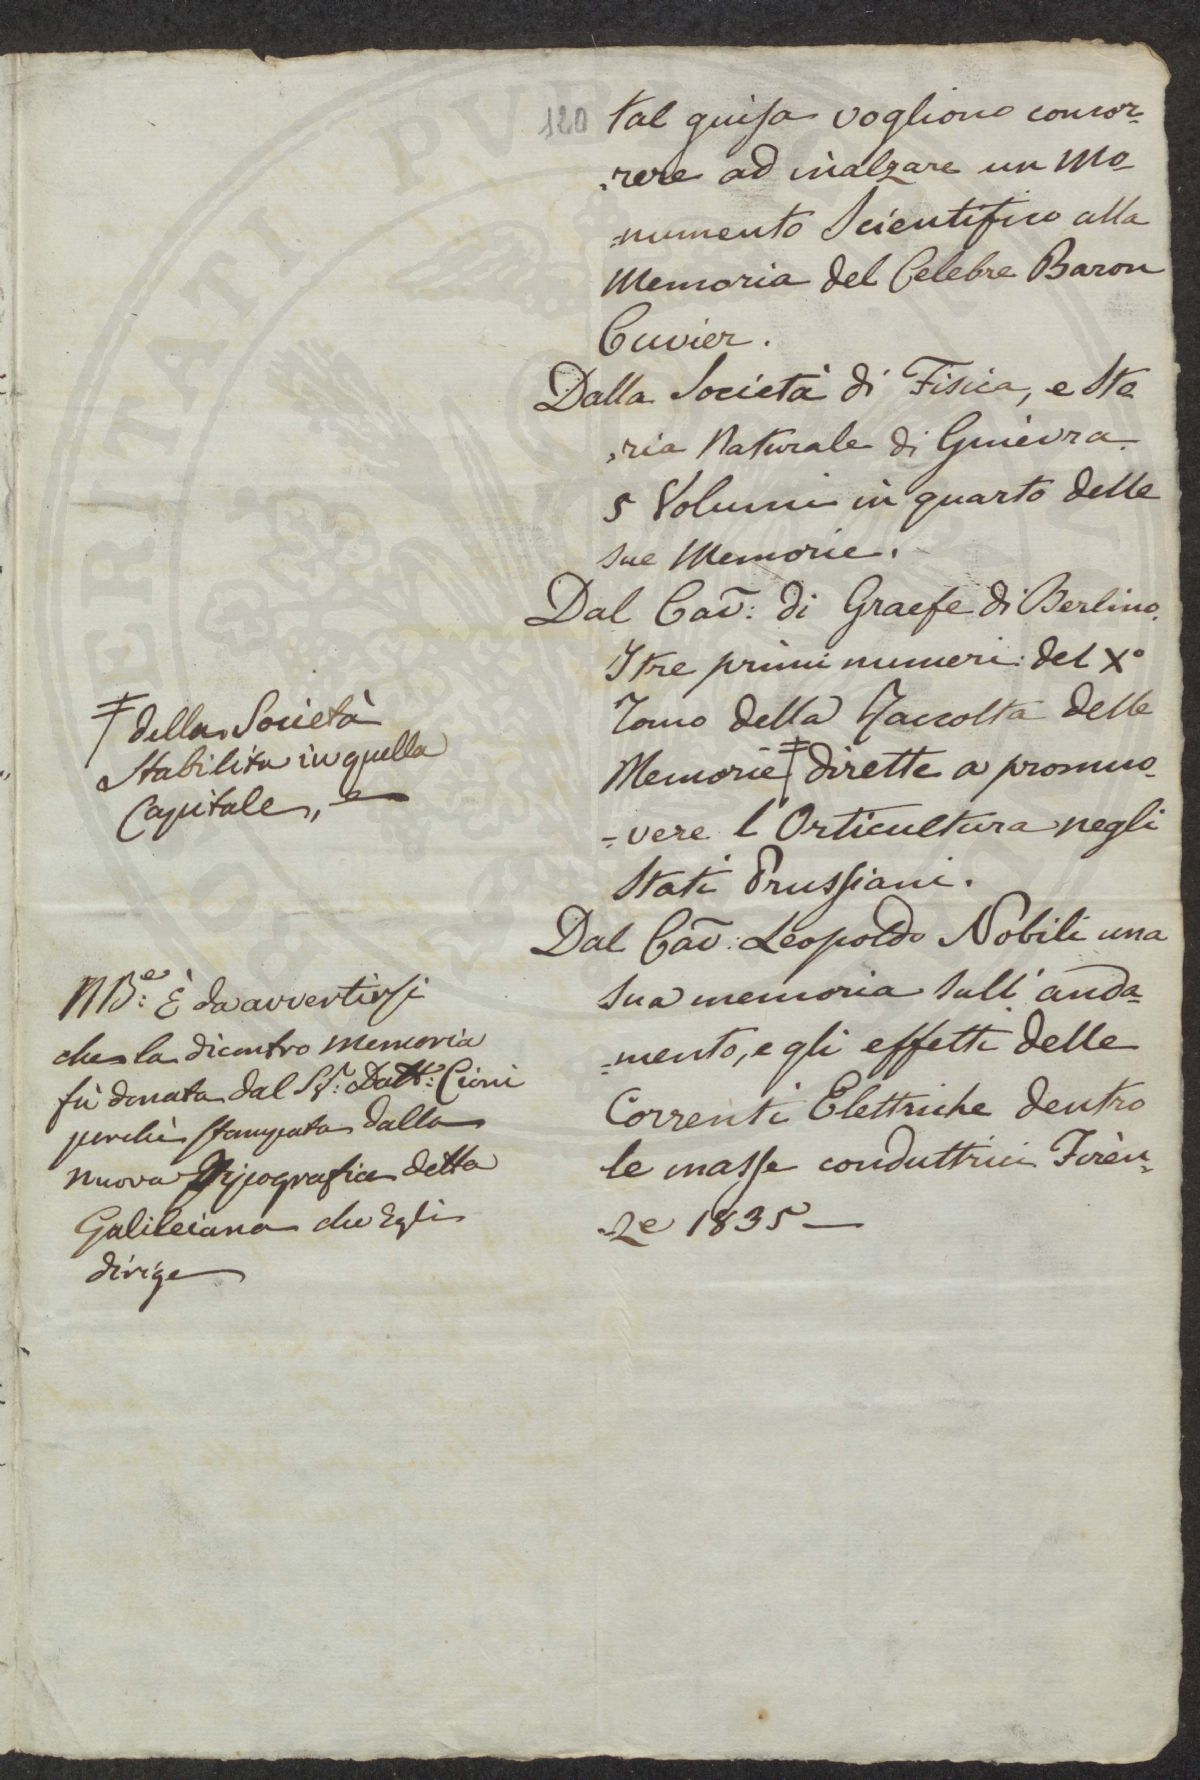 120
tal guisa vogliono concor-
-rere ad inalzare un Mo-
=numento Scientifico alla
Memoria del Celebre Baron
Cuvier.
Dalla Società di Fisica, e Sto
-ria Naturale di Ginevra.
5 Volumi in quarto delle
sue Memorie.
Dal Cav: di Graefe di Berlino.
I tre primi numeri del X°
Tomo della Raccolta delle
Memorie ‡ dirette a promuo-
=vere l'Orticultura negli
Stati Prussiani.
Dal Cav: Leopoldo Nobili una
sua memoria sull'anda=
=mento, e gli effetti delle
Correnti Elettriche dentro
le masse conduttrici Firen-
-ze 1835 —
‡ della Società
Stabilita in quella
Capitale, e
NB.e: È da avvertirsi
che la dicontro memoria
fù donata dal Sr: Dott: Cioni
perchè stampata dalla
nuova Tipografia detta
Galileiana che Egli
dirige